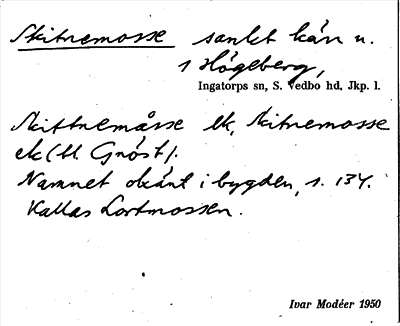 Skitnemosse sankt kärr u.
s Högeberg,
Ingatorps sn, S. Vedbo hd, Jkp. l.
Skittnemåsse lk, Skitnemosse
ek (bl. Gnöst).
Namnet okänt i bygden, s. 134.
Kallas Lortmossen.
Ivar Modéer 1950